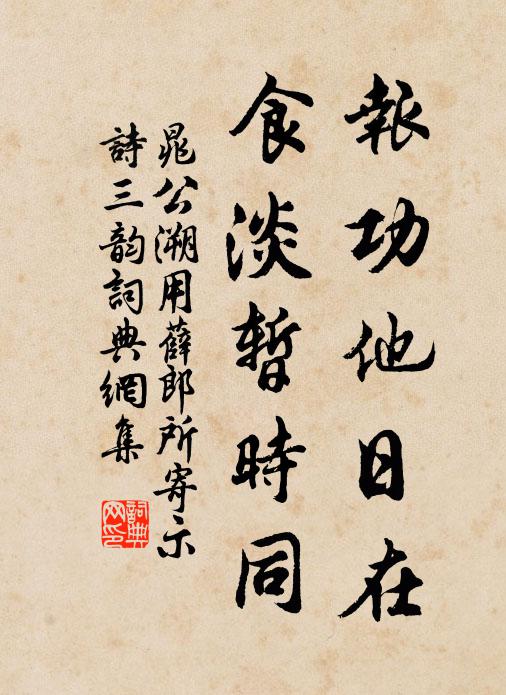 報功他日在
食淡暫時同
晁公溯用薛郎所寄示
詩三韵詞典網集
詞典
网印